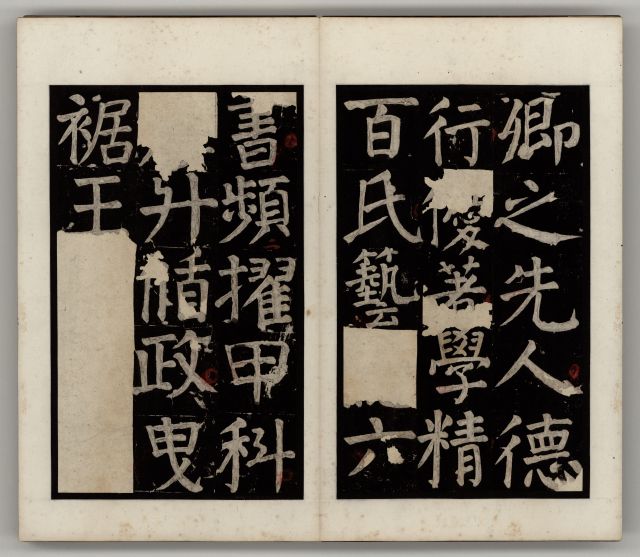 卿之先人德
行優著學精
百氏藝六
書頻擢甲科
升循政曳
裾王